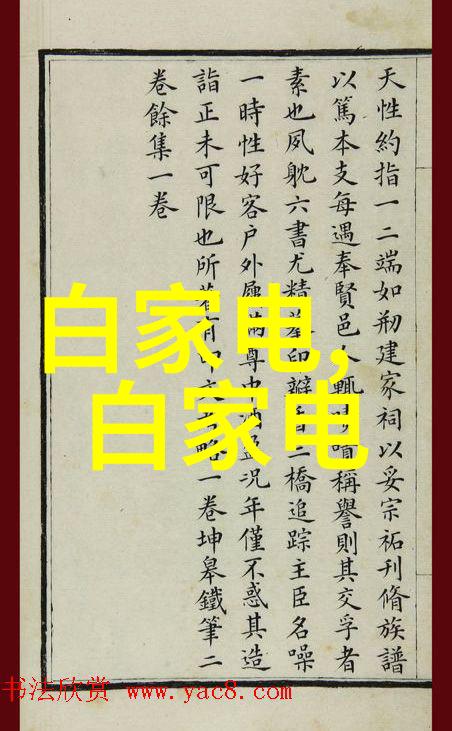 天性約指一二端如剏建家祠以妥宗祏刊脩族譜
以篤本支每遇奉賢邑人輒嘖稱譽則其交孚者
素也夙躭六書尤精印二橋追踪主臣名噪
一時性好客户外屨滿尊中酒盈況年僅不惑其造
詣正未可限也所有略一卷坤皋鐵筆二
卷餘集一卷
白家电,
白家电
书法欣赏 www.yac8.com